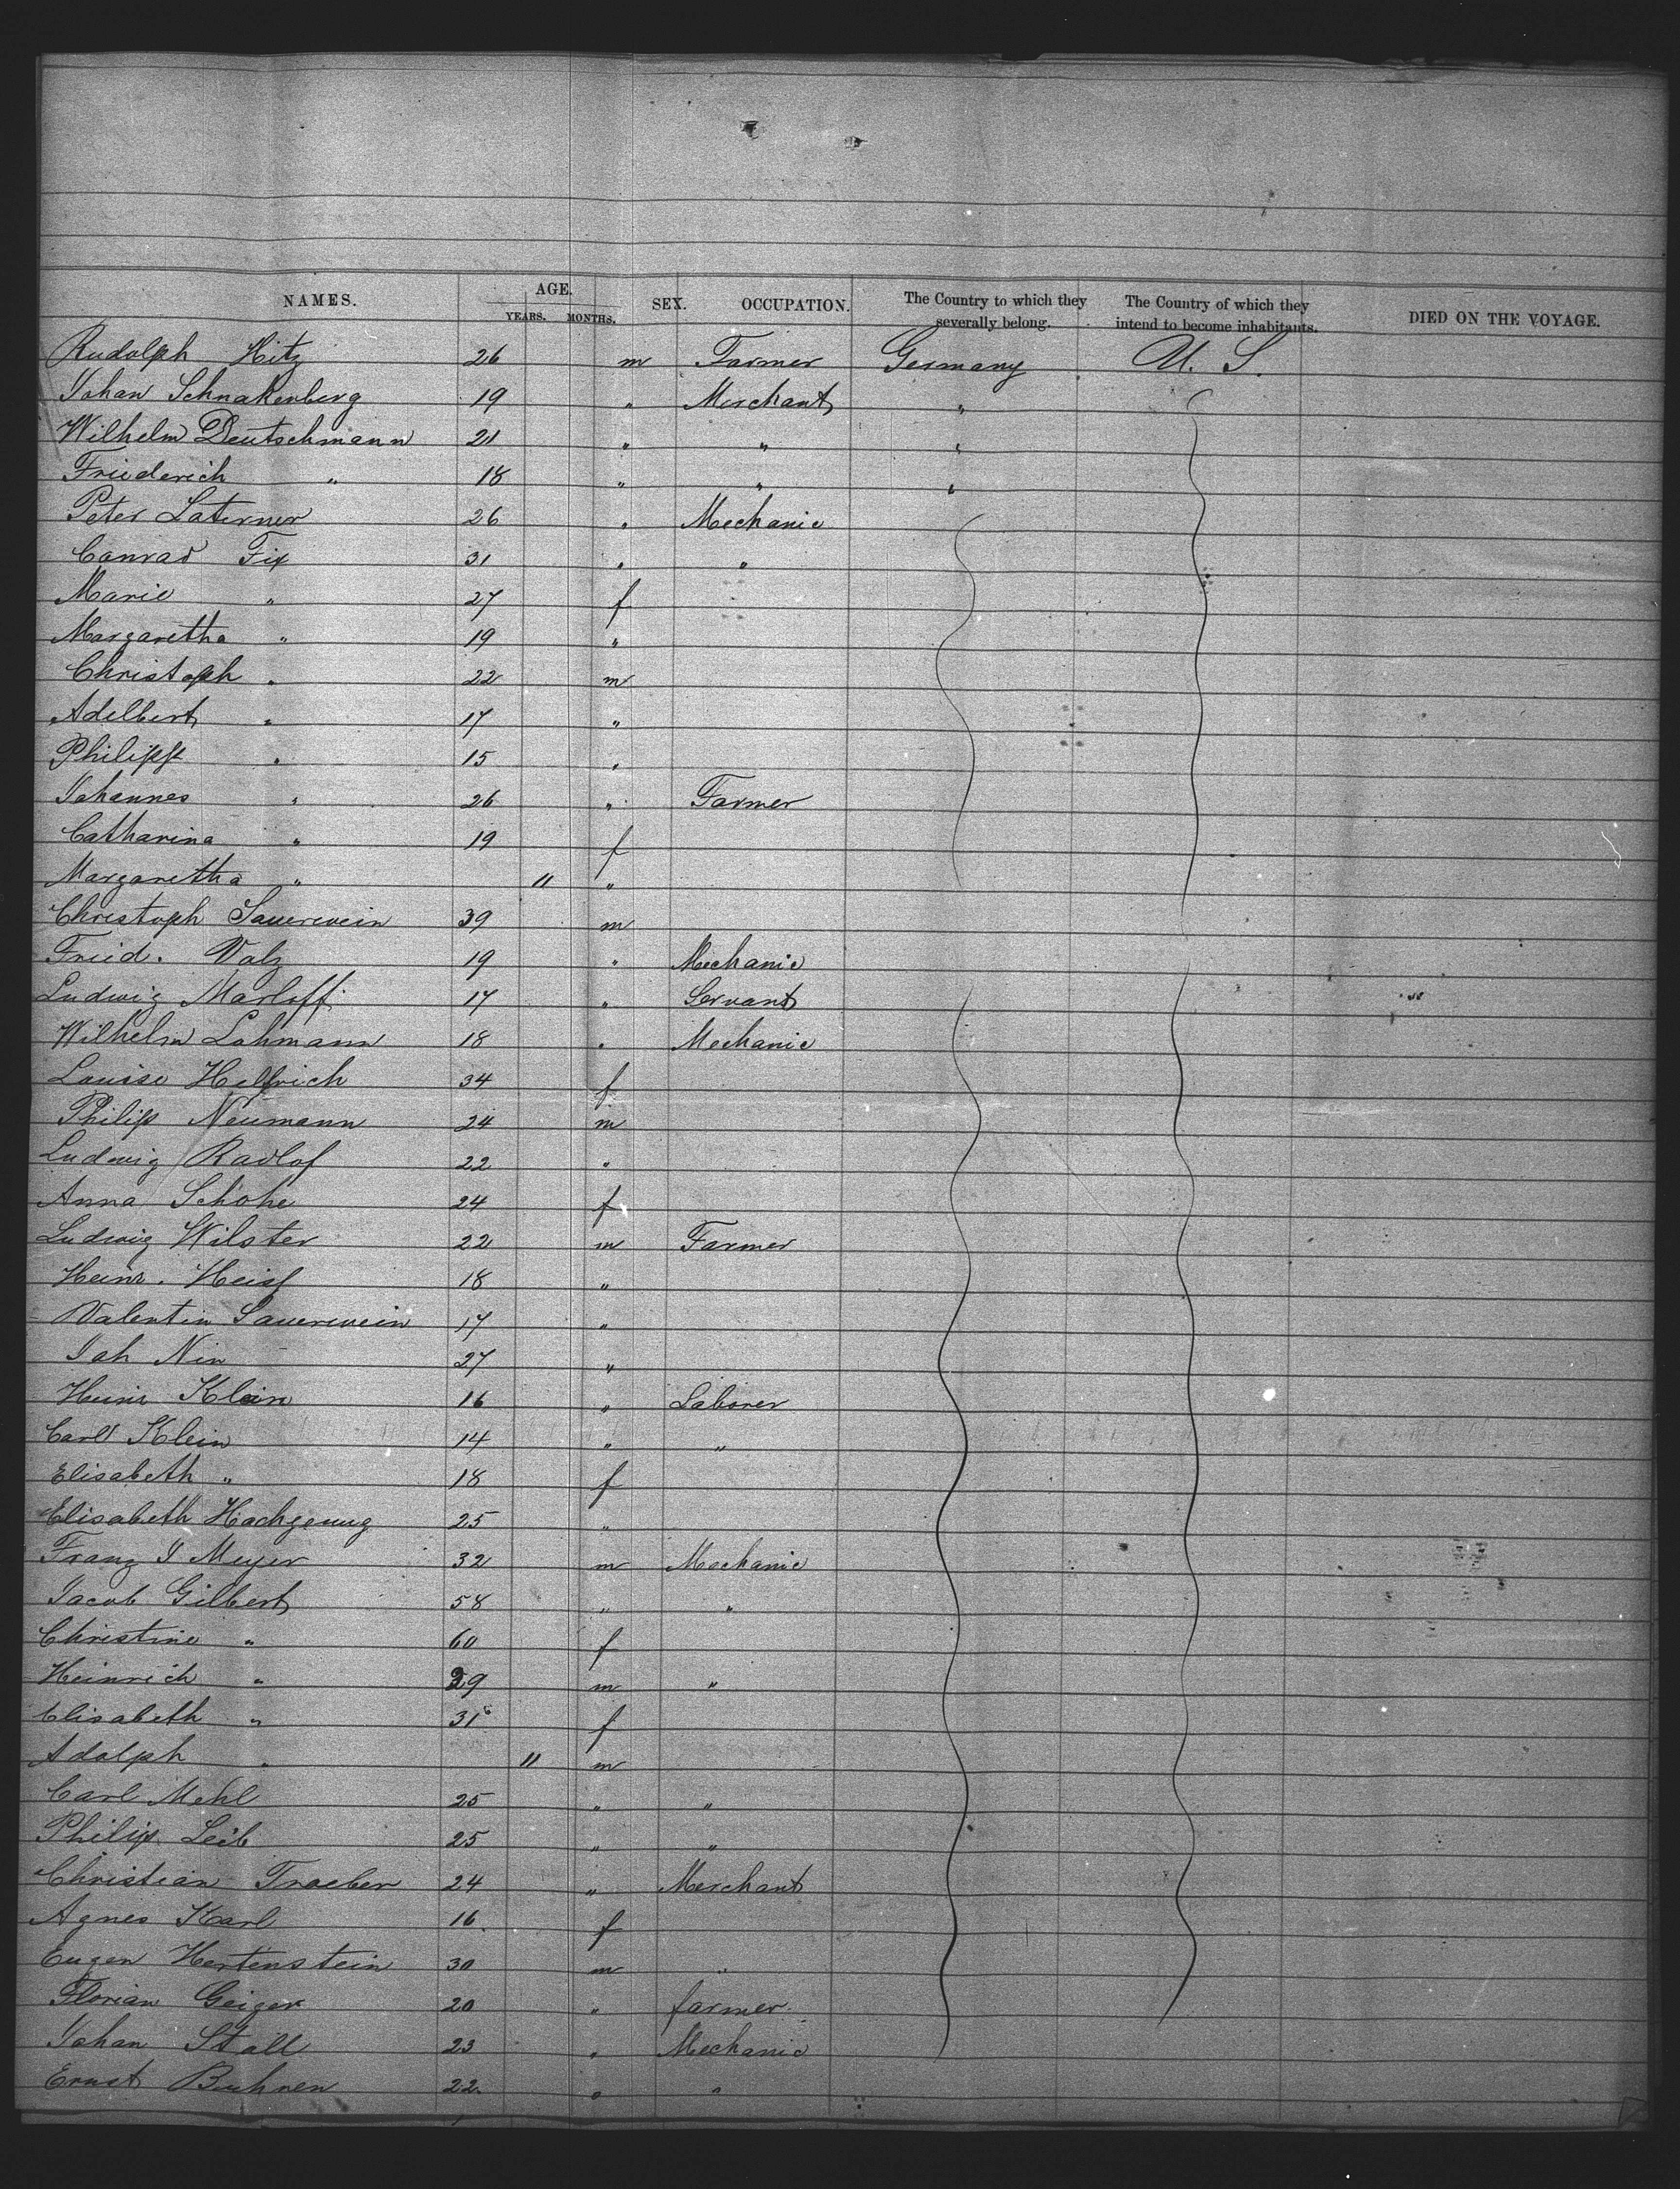 NAMES. AGE. YEARS. MONTHS. SEX. OCCUPATION. The Country to which they severally belong. The Country of which they intend to become inhabitants. DIED ON THE VOYAGE.
Rudolph Hitz 26 m Farmer Germany U. S.
Johan Schnakenberg 19 " Merchant "
Wilhelm Deutschmann 21 " " "
Friederich " 18 " " "
Peter Laterner 26 " Mechanic
Conrad Fix 31 " "
Marie " 27 f
Margaretha " 19 "
Christoph " 22 m
Adelbert " 17 "
Philipp " 15 "
Johannes " 26 " Farmer
Catharina " 19 f
Margaretha " 11 "
Christoph Sauerwein 39 m
Fried. Valz 19 " Mechanic
Ludwig Marloff 17 " Servant
Wilhelm Lohmann 18 " Mechanic
Louise Helfrich 34 f
Philip Neumann 24 m
Ludwig Radlof 22 "
Anna Schöhe 24 f
Ludwig Wilster 22 m Farmer
Heinr. Heisf 18 "
Valentin Sauerwein 17 "
Joh Nin 27 "
Heinr Klein 16 " Laborer
Carl Klein 14 " "
Elisabeth " 18 f
Elisabeth Hachgenug 25 "
Franz J Meyer 32 m Mechanic
Jacob Gilbert 58 " "
Christine " 60 f
Heinrich " 29 m "
Elisabeth " 31 f
Adolph " 11 m
Carl Mehl 25 " "
Philip Leib 25 " "
Christian Traeber 24 " Merchant
Agnes Karl 16 f
Eugen Hertenstein 30 m "
Florian Geiger 20 " farmer
Johan Stoll 23 " Mechanic
Ernst Buhnen 22 " "